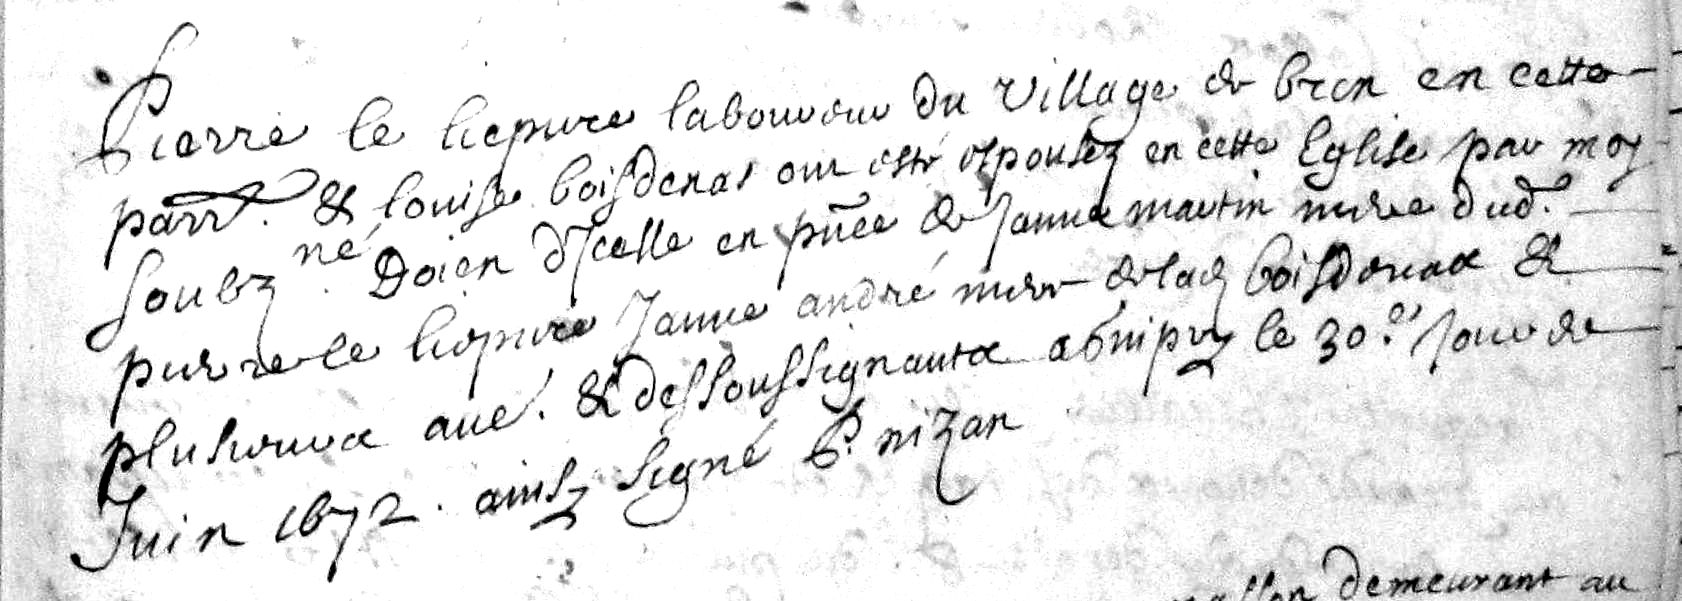 Pierre le liepvre laboureur du village de bron en cette
parr. & louise boisdenas ont esté espousez en cette Eglise par moy
soubz né Doien d'Icelle en pñce de Janne martin mere dud.
pierre le liepvre Janne andré mere de lad boisdenas &
plusieurs aue. & dessoussignants le 30.e jour de
Juin 1672. ainsy signé P. nizan
demeurant au